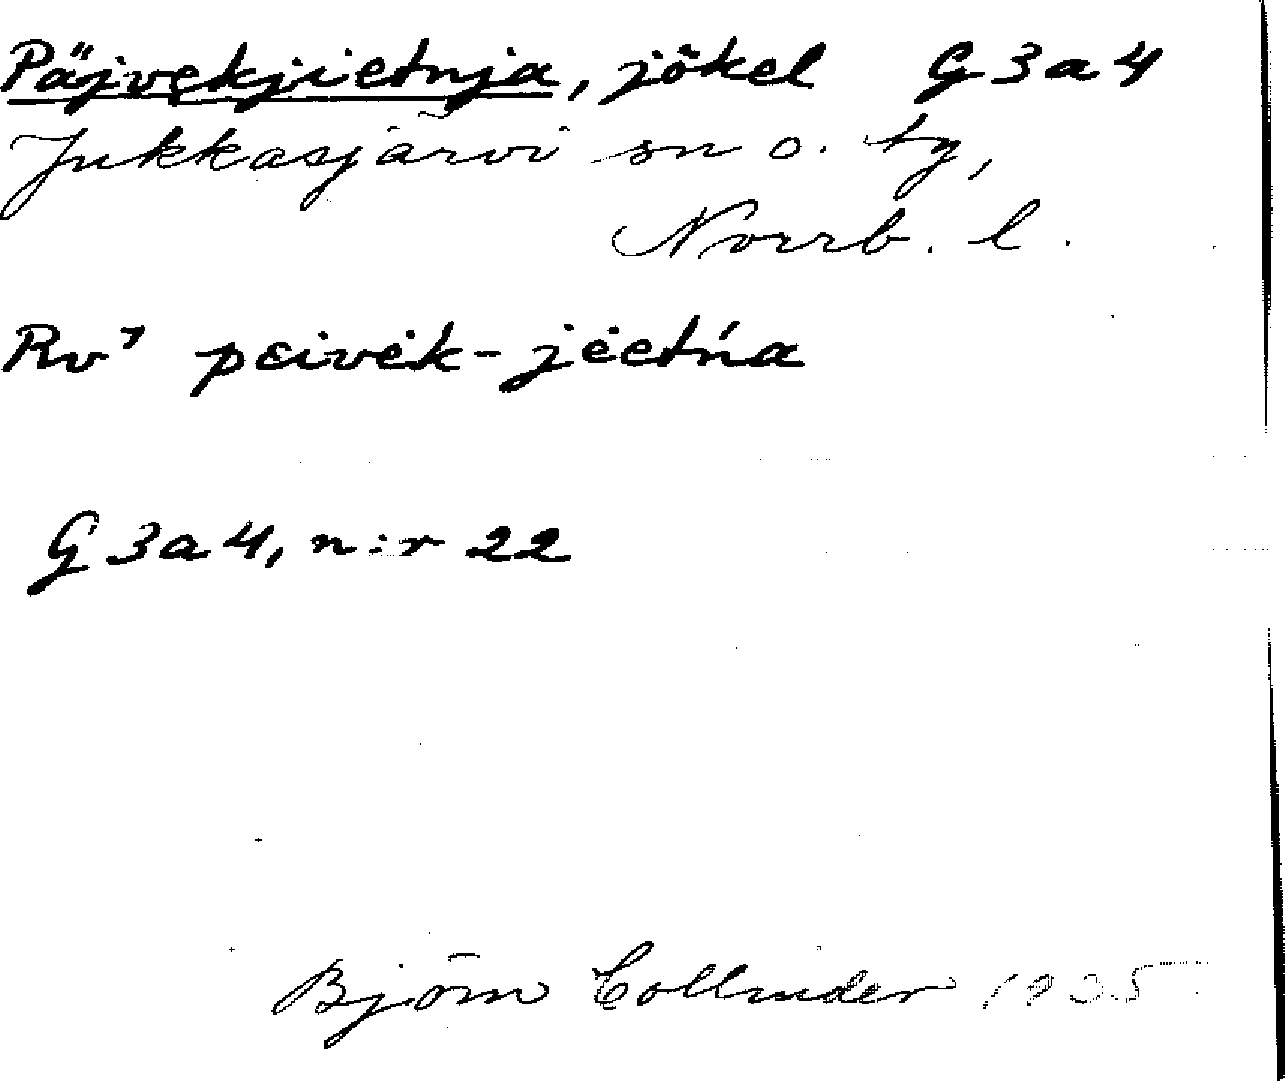 Päjvękjietnja, jökel G 3 a 4
Jukkasjärvi sn o. tg,
Norrb. l.
Rv⁷ pɛivėk-jėetńa
G 3 a 4, n:r 22
Björn Collinder 1935